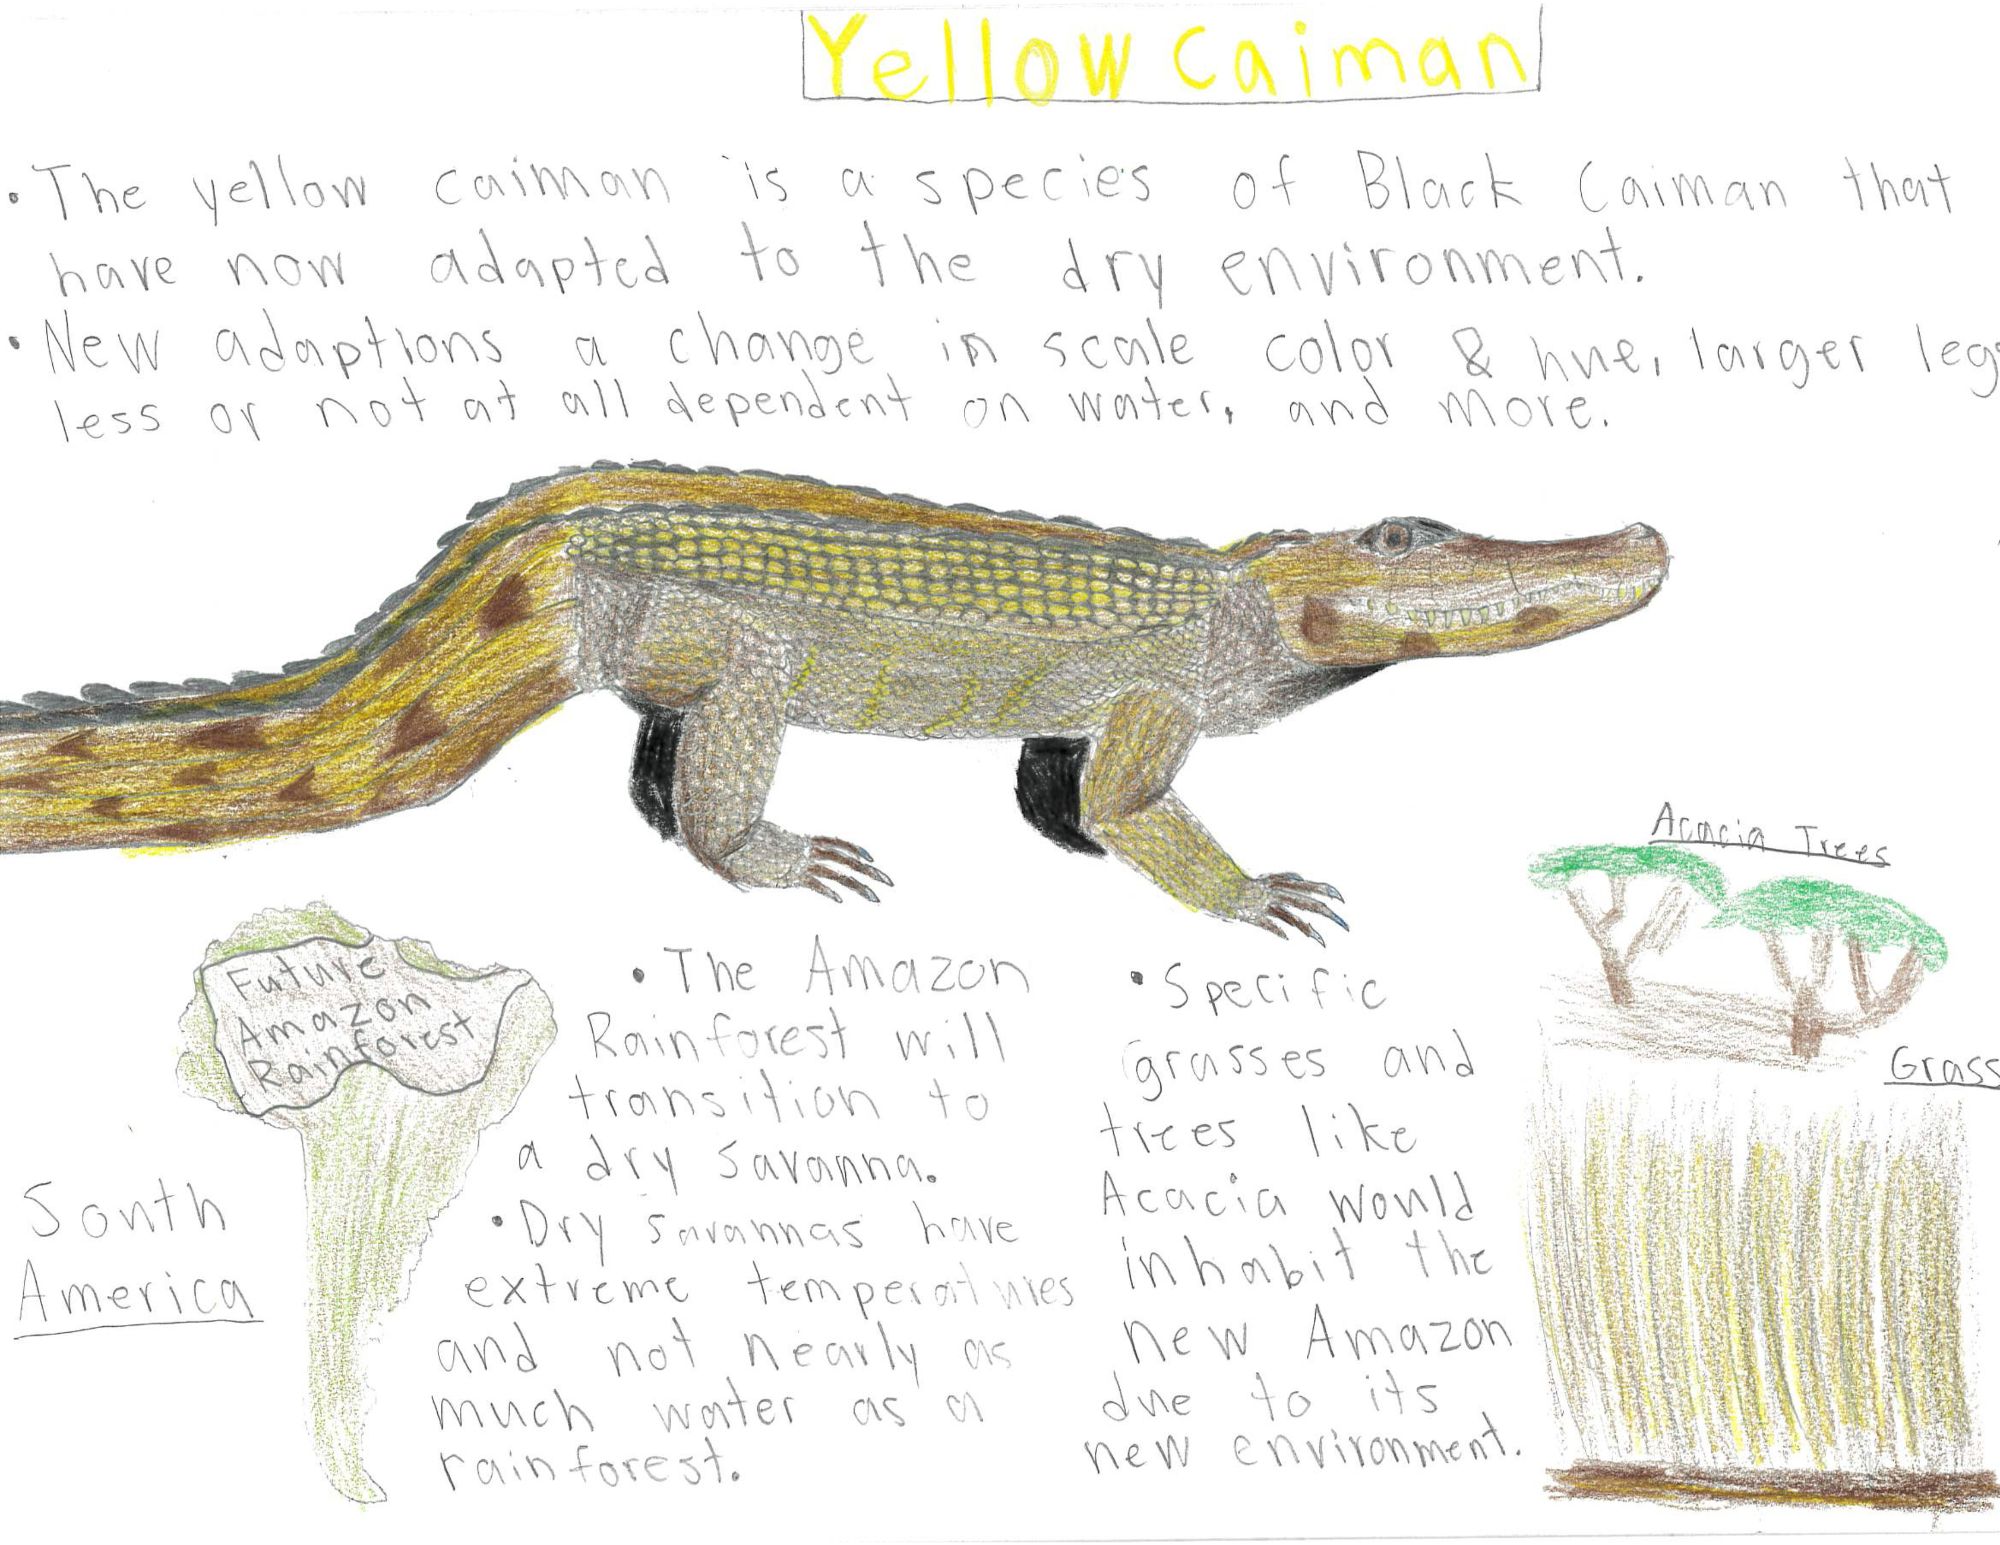 Yellow Caiman
• The yellow caiman is a species of Black Caiman that
have now adapted to the dry environment.
• New adaptions a change in scale color & hue, larger legs
less or not at all dependent on water, and more.
Acacia Trees
Future
Amazon
Rainforest
• The Amazon
Rainforest will
transition to
a dry savanna.
• Dry savannas have
extreme temperatures
and not nearly as
much water as a
rainforest.
• Specific
grasses and
trees like
Acacia would
inhabit the
new Amazon
due to its
new environment.
Grass
South
America